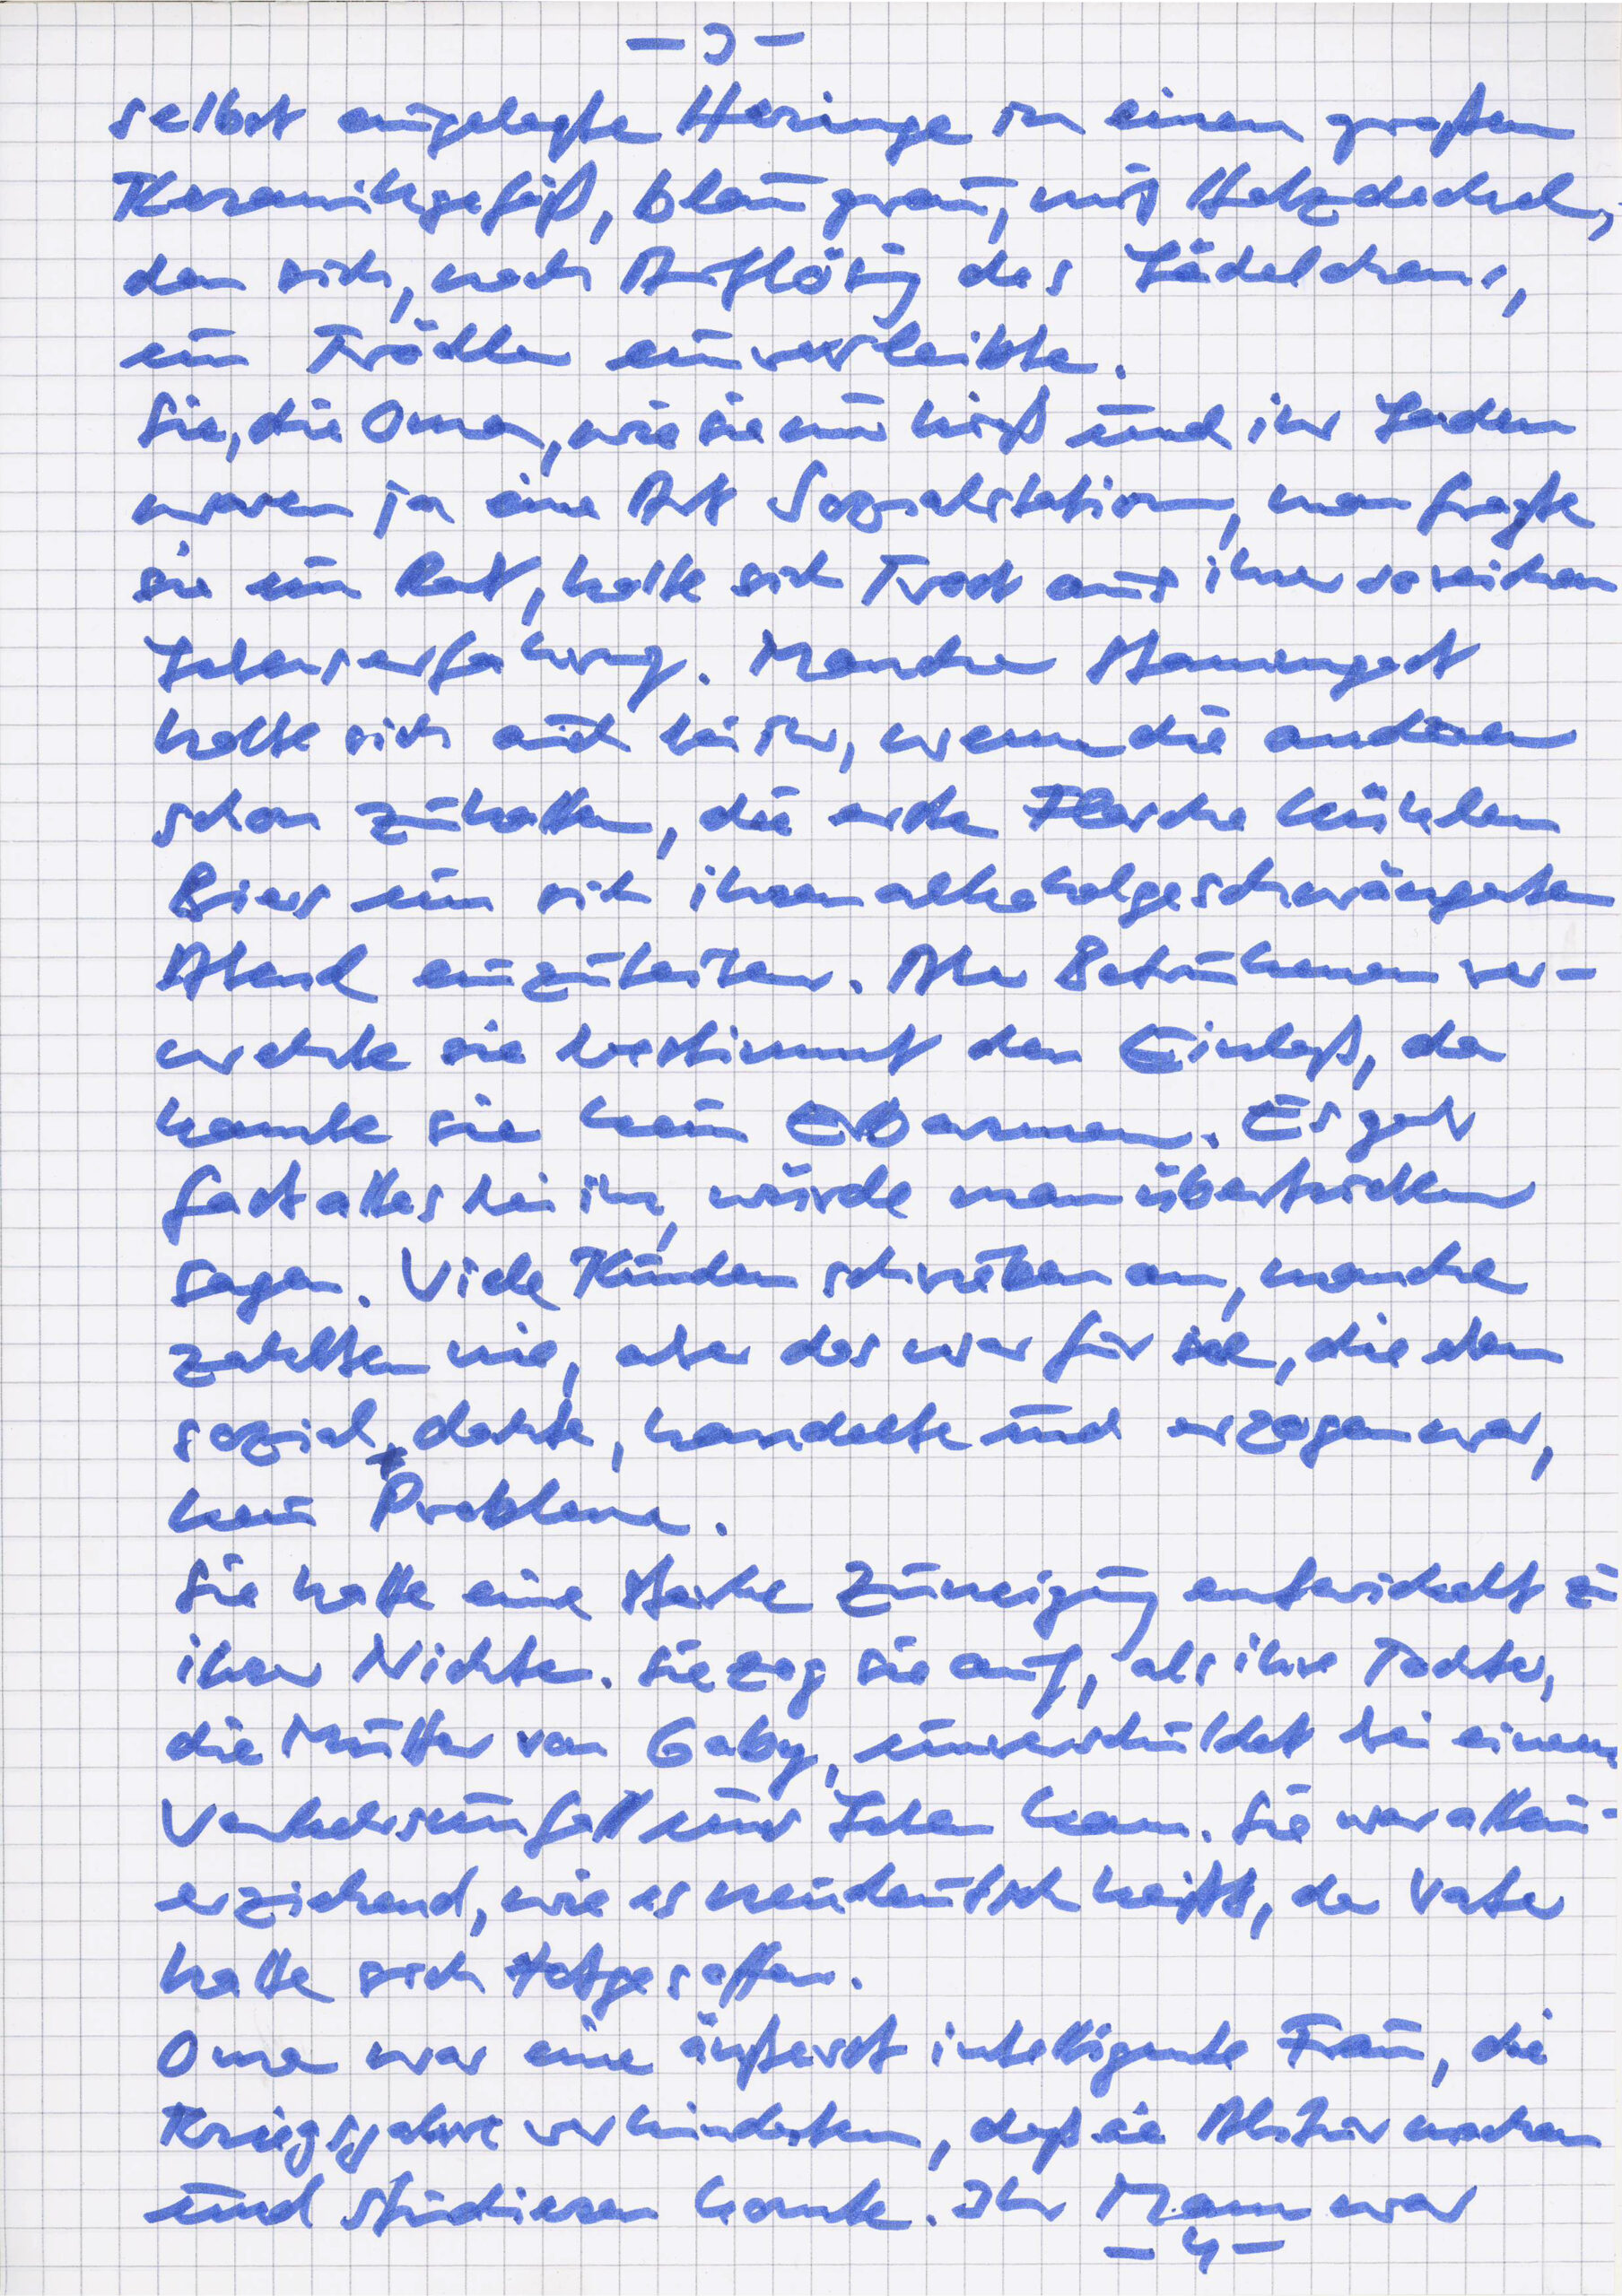 - 3 -
selbst eingelegte Heringe in einem großen
Keramikgefäß, blaugrau, mit Holzdeckel,
den sich, nach Auflösung des Lädelchens,
ein Trödler einverleibte.
Sie, die Oma, wie sie nur hieß und ihr Laden
waren ja eine Art Sozialstation, man fragte
sie um Rat, holte sich Trost aus ihrer so reichen
Lebenserfahrung. Mancher Stammgast
holte sich auch bei ihr, wenn die anderen
schon zuhatten, die erste Flasche kühlen
Biers um sich ihren alkoholgeschwängerten
Abend einzuleiten. Aber Betrunkenen ver-
wehrte sie bestimmt den Einlaß, da
kannte sie kein Erbarmen. Es gab
fast alles bei ihr, würde man übertrieben
sagen. Viele Kunden schrieben an, manche
zahlten nie, aber das war für sie, die eben
sozial dachte, handelte und erzogen war,
kein Problem.
Sie hatte eine starke Zuneigung entwickelt zu
ihrer Nichte. Sie zog sie auf, als ihre Tochter,
die Mutter von Gaby, unverschuldet bei einem
Verkehrsunfall ums Leben kam. Sie war allein-
erziehend, wie es neudeutsch heißt, der Vater
hatte sich totgesoffen.
Oma war eine äußerst intelligente Frau, die
Kriegsjahre verhinderten, daß sie Abitur machen
und studieren konnte. Ihr Mann war
- 4 -